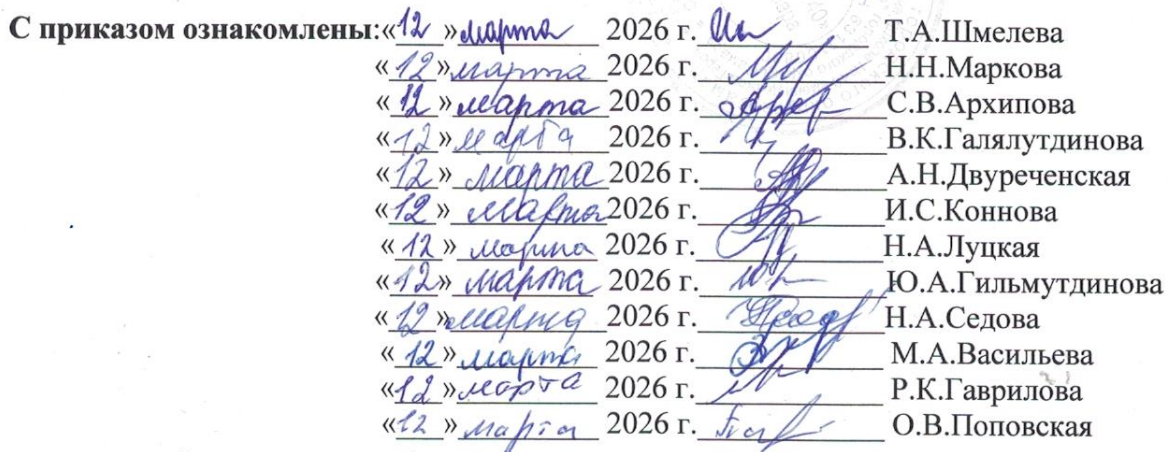 С приказом ознакомлены:«12 »марта 2026 г. Т.А.Шмелева
«12»марта 2026 г. Н.Н.Маркова
«12»марта 2026 г. С.В.Архипова
«12»марта 2026 г. В.К.Галялутдинова
«12» марта 2026 г. А.Н.Двуреченская
«12» марта 2026 г. И.С.Коннова
«12» марта 2026 г. Н.А.Луцкая
«12» марта 2026 г. Ю.А.Гильмутдинова
«12»марта 2026 г. Н.А.Седова
«12»марта 2026 г. М.А.Васильева
«12»марта 2026 г. Р.К.Гаврилова
«12 »марта 2026 г. О.В.Поповская